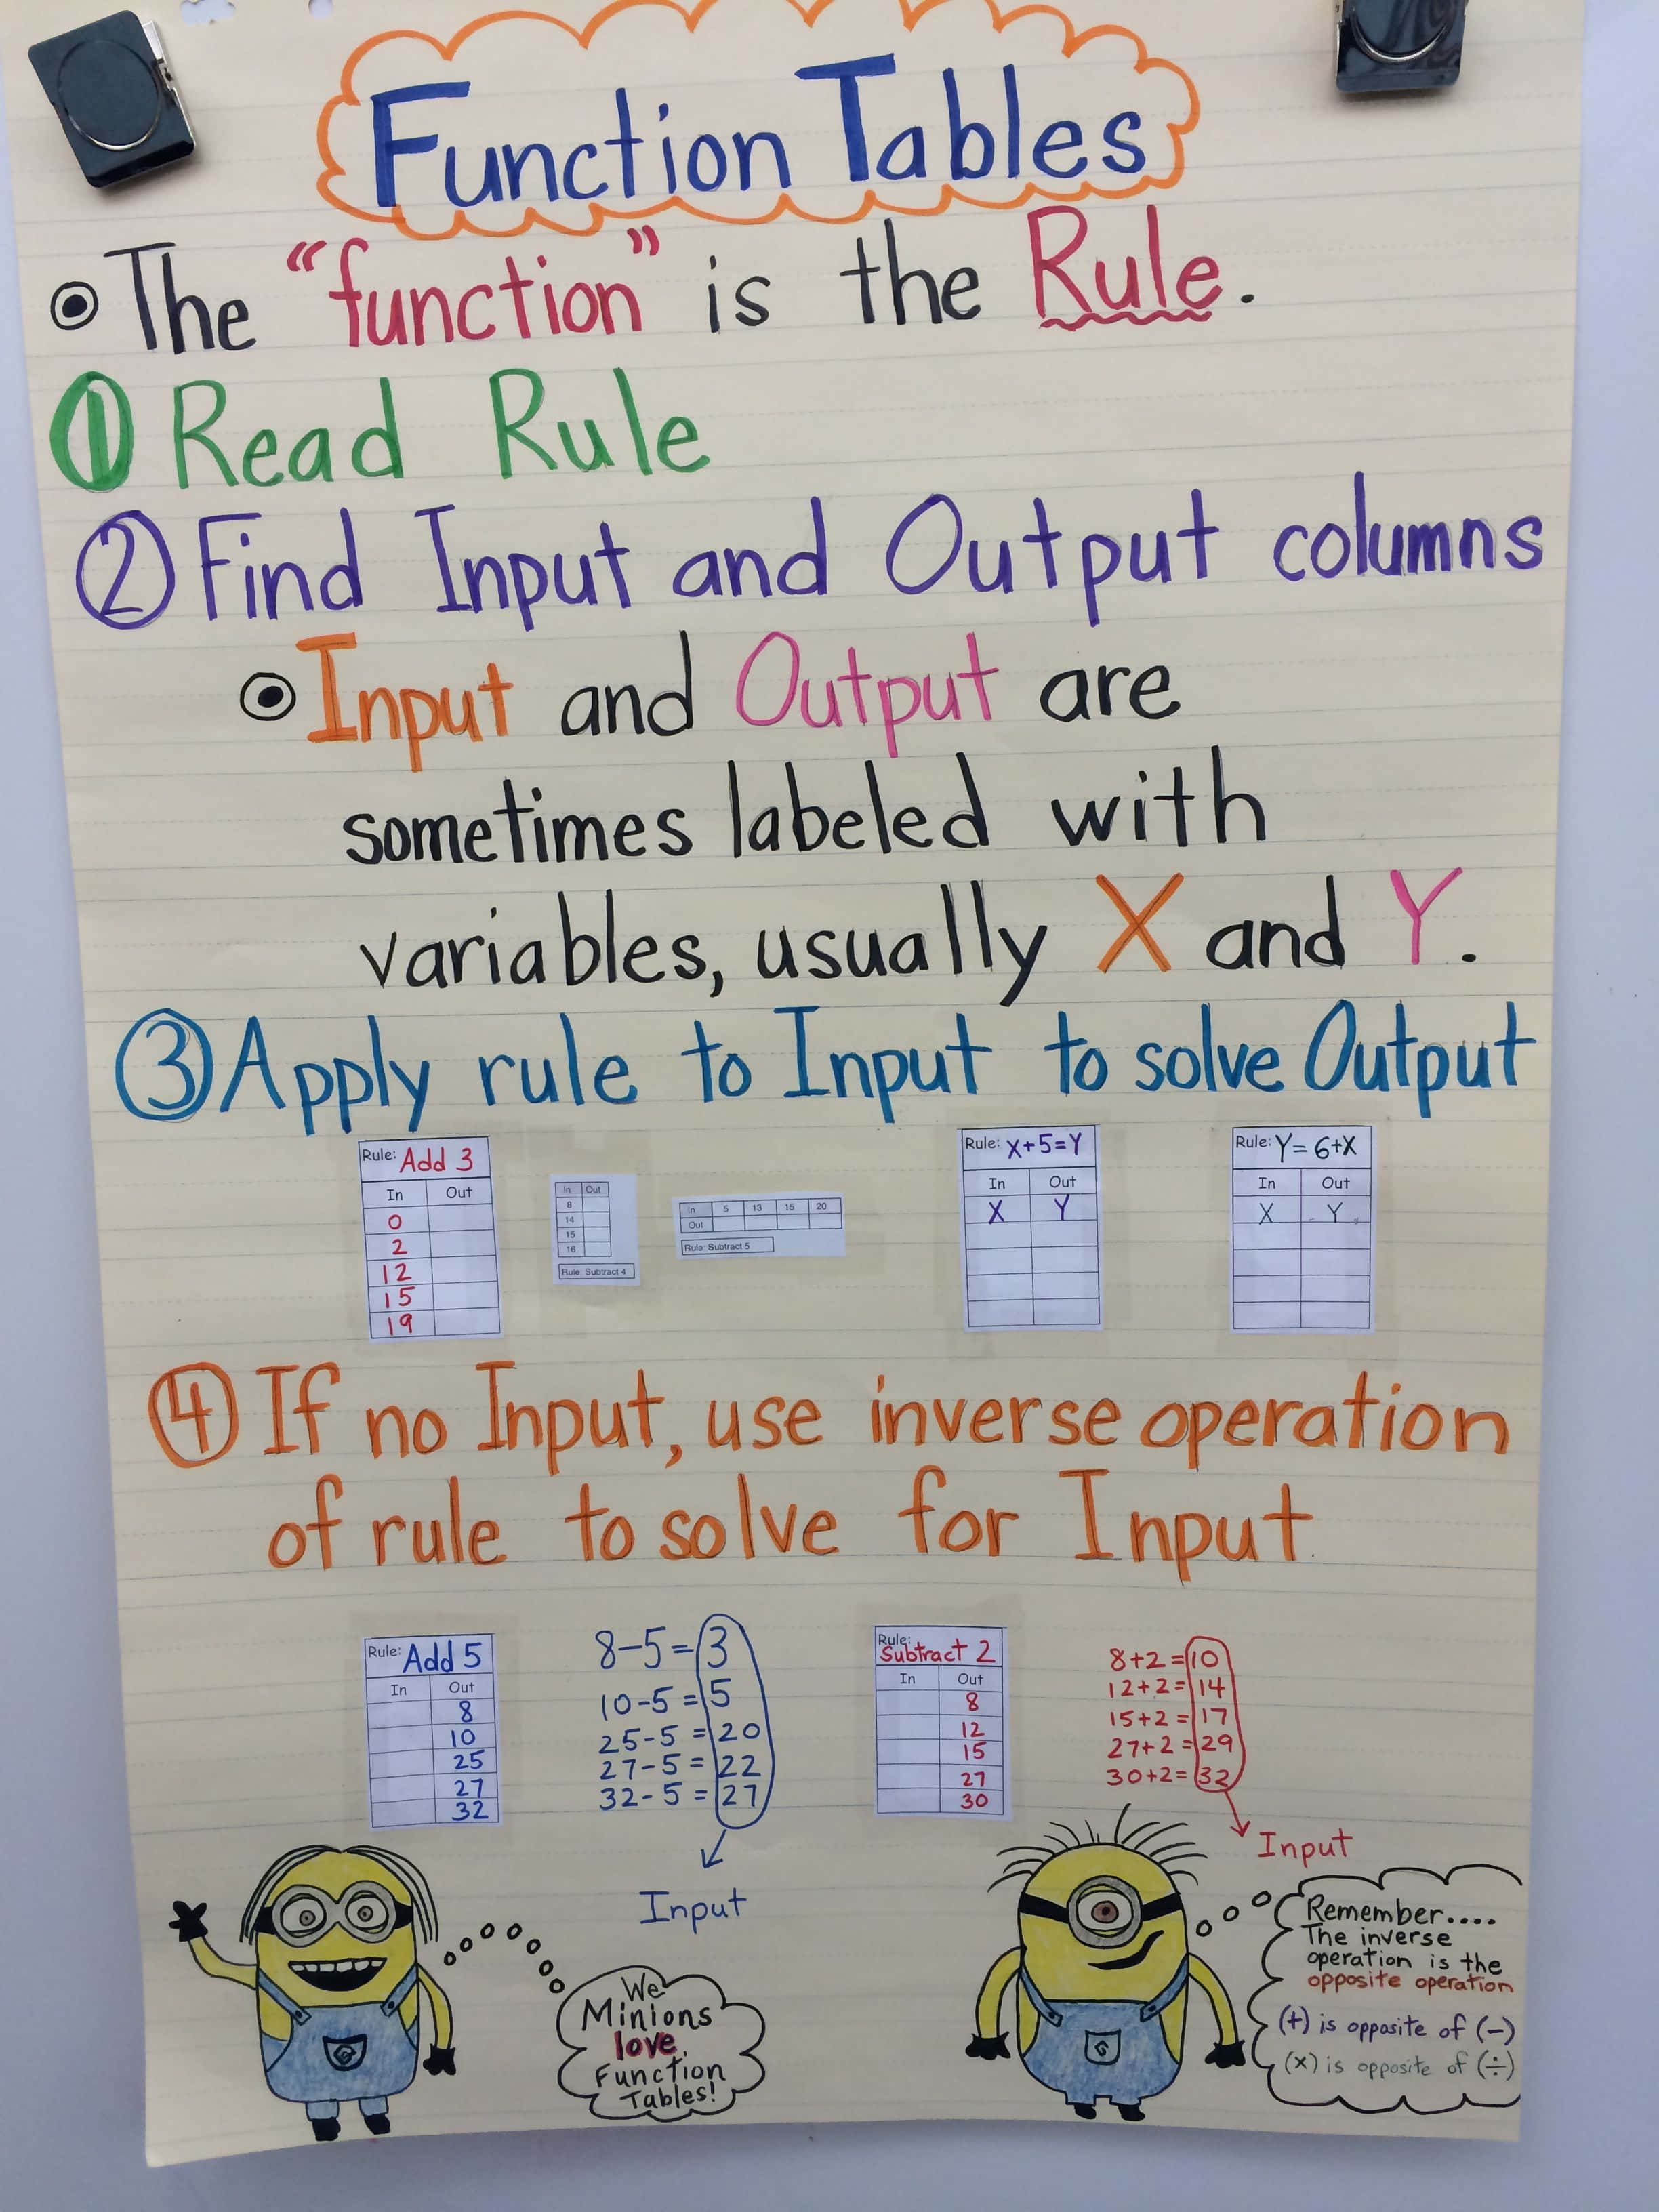 Function Tables
The "function" is the Rule.
① Read Rule
② Find Input and Output columns
Input and Output are
sometimes labeled with
variables, usually X and Y.
③ Apply rule to Input to solve Output
Rule: Add 3
In Out
0
2
12
15
19
In Out
8
14
15
16
Rule: Subtract 4
In 5 13 15 20
Out
Rule: Subtract 5
Rule: X+5=Y
In Out
X Y
Rule: Y=6+X
In Out
X Y
④ If no Input, use inverse operation
of rule to solve for Input
Rule: Add 5
In Out
8
10
25
27
32
8-5=3
10-5=5
25-5=20
27-5=22
32-5=27
Input
Rule: Subtract 2
In Out
8
12
15
27
30
8+2=10
12+2=14
15+2=17
27+2=29
30+2=32
Input
We
Minions
love
Function
Tables!
Remember....
The inverse
operation is the
opposite operation
(+) is opposite of (-)
(×) is opposite of (÷)
G
G